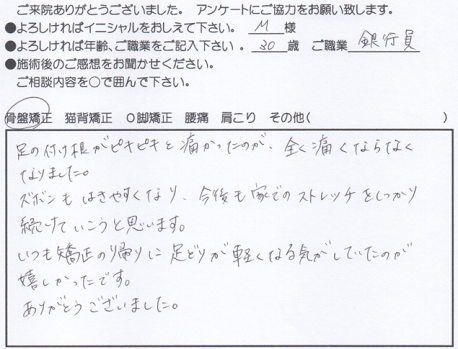 ご来院ありがとうございました。 アンケートにご協力をお願い致します。
●よろしければイニシャルをおしえて下さい。 M 様
●よろしければ年齢、ご職業をご記入下さい。 30 歳 ご職業 銀行員
●施術後のご感想をお聞かせください。
ご相談内容を○で囲んで下さい。
骨盤矯正 猫背矯正 O脚矯正 腰痛 肩こり その他( )
足の付け根がピキピキと痛かったのが、全く痛くならなく
なりました。
ズボンもはきやすくなり、今後も家でのストレッチをしっかり
続けていこうと思います。
いつも矯正の帰りに足どりが軽くなる気がしていたのが
嬉しかったです。
ありがとうございました。